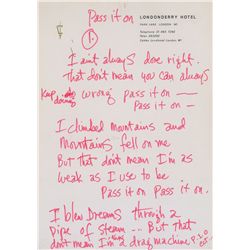 Pass it on
LONDONDERRY HOTEL
PARK LANE LONDON W1
1.
I aint always done right.
that don't mean you can always
Keep doing wrong pass it on —
Pass it on
I climbed mountains and
Mountains fell on me
But that don't mean I'm as
weak as I use to be
Pass it on Pass it on.
I blew Dreams through a
pipe of steam ... But that
don't mean I'm a drag machine, P.I.O